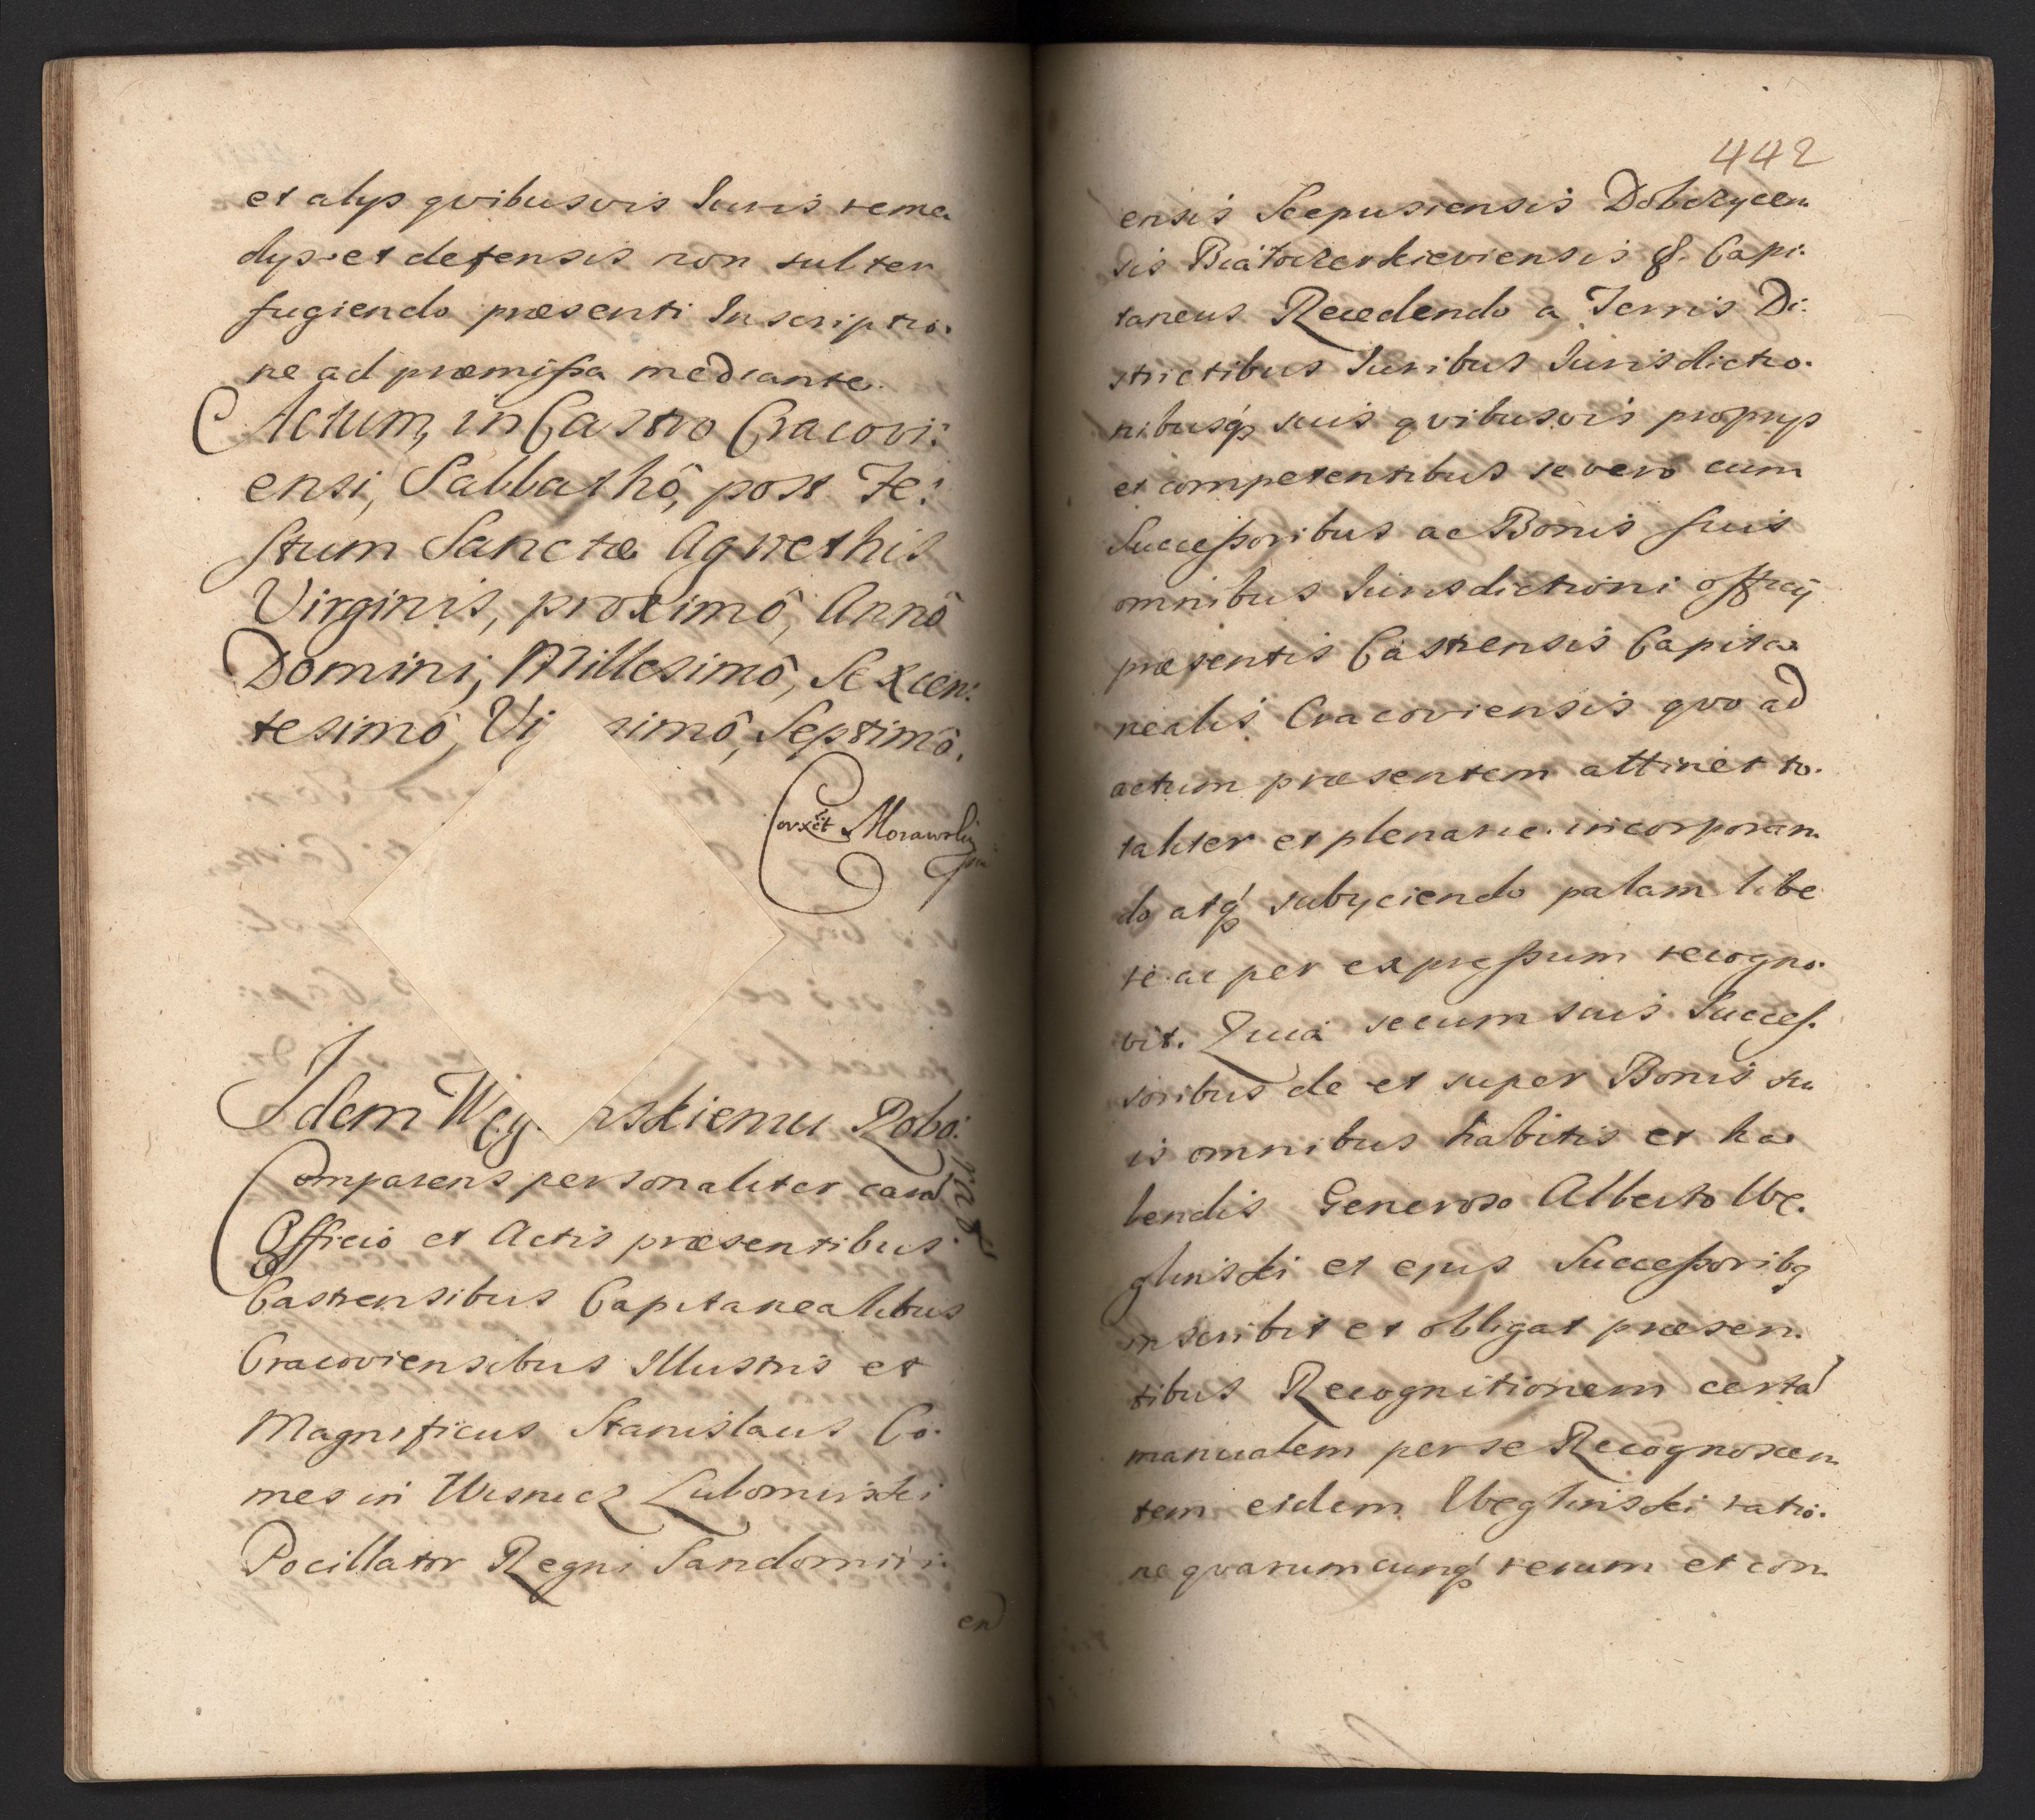 et alys qvibusvis Iuris reme
dys et defensis non subter
fugiendo præsenti Inscriptio:
ne ad præmissa mediante.
Actum, in Castro Cracovi:
ensi, Sabbathô, post Fe:
stum Sanctæ Agnethis
Virginis, proximô, Annô
Domini, Millesimô, Sexcen:
tesimô, Vi simô, Septimô.
Corxit Morawski
Idem Węg nskiemu Robo:
Comparens personaliter coram
Officio et Actis præsentibus
Castrensibus Capitanealibus
Cracoviensibus Illustris et
Magnificus Stanislaus Co:
mes in Wisnicz Lubomirski
Pocillator Regni Sandomiri:
en
442
ensis Scepusiensis Dobczycen
sis Białocerkieviensis &. Capi:
taneus Recedendo a Terris Di:
strictibus Iuribus Iurisdictio:
nibusq suis qvibusvis proprys
et competentibus se vero cum
Successoribus ac Bonis suis
omnibus Iurisdictioni officij
præsentis Castrensis Capita
nealis Cracoviensis qvo ad
actum præsentem attinet to:
taliter et plenarie incorporan
do atq subyciendo palam libe
re ac per expressum recogno:
vit. Quia secum suis Succes:
soribus de et super Bonis su
is omnibus habitis et ha
bendis Generoso Alberto We:
glinski et ejus Successoribq
inscribit et obligat præsen:
tibus Recognitionem certa
manualem per se Recognoscen
tem eidem Weglinski ratio:
ne qvarumcunq rerum et con